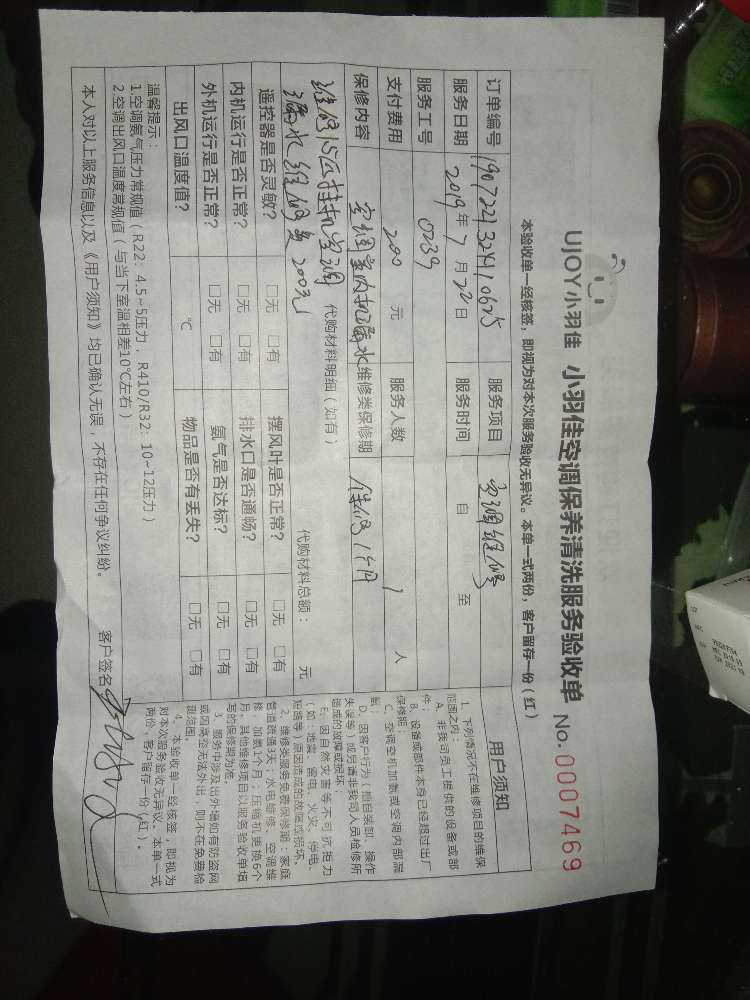 UJOY小羽佳 小羽佳空调保养清洗服务验收单 No. 0007469
本验收单一经核签，即视为对本次服务验收无异议。本单一式两份，客户留存一份（红）
订单编号 服务项目 空调维修
服务日期 2019年7月22日 服务时间 自 至
服务工号 0239
支付费用 200 元 服务人数 1 人
保修内容 空调室内机漏水 维修类保修期 保修1个月
代购材料明细（如有）
维修1.5匹挂机空调
漏水维修费200元 代购材料总额： 元
遥控器是否灵敏？ □无 □有 摆风叶是否正常？ □无 □有
内机运行是否正常？ □无 □有 排水口是否通畅？ □无 □有
外机运行是否正常？ □无 □有 氨气是否达标？ □无 □有
出风口温度值？ ℃ 物品是否有丢失？ □无 □有
温馨提示：
1.空调氨气压力常规值（R22：4.5~5压力，R410/R32：10~12压力）
2.空调出风口温度常规值（与当下室温相差10℃左右）
本人对以上服务信息以及《用户须知》均已确认无误，不存在任何争议纠纷。 客户签名
用户须知
1、下列情况不在维修项目的维保
范围之内：
A、非我司员工提供的设备或部
件；
B、设备或部件本身已经超过出厂
保修期；
C、空调空机加氨或空调内部漏
氨；
D、因客户行为（擅自装卸、操作
失误等）或另请非我司人员检修所
造成的故障或损坏；
E、因自然灾害等不可抗拒力
（如：地震、雷电、火灾、停电、
短路等）原因造成的故障或损坏。
2、维修类服务免费保修期：家庭
管道疏通3天；水电维修、空调维
修、加氨1个月；压缩机更换6个
月，其他维修项目以服务验收单填
写的保修期为准。
3、服务中涉及出外墙如有防盗网
或因高空无法外出，则不在免费检
修范围。
4、本验收单一经核签，即视为
对本次服务验收无异议。本单一式
两份，客户留存一份（红）。